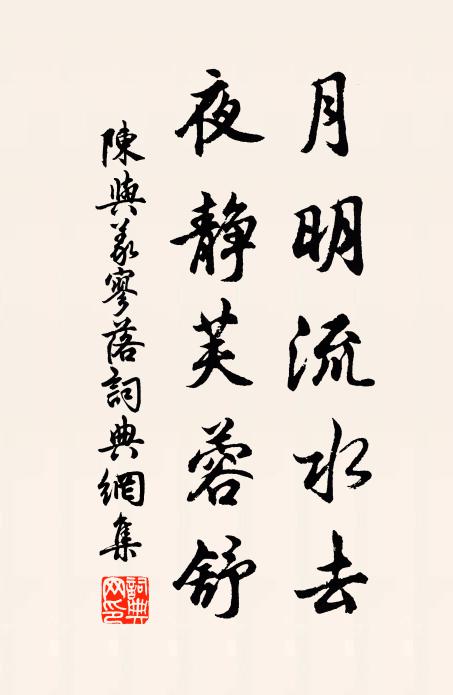 月明流水去
夜静芙蓉舒
陳與義寥落詞典網集
詞典網印